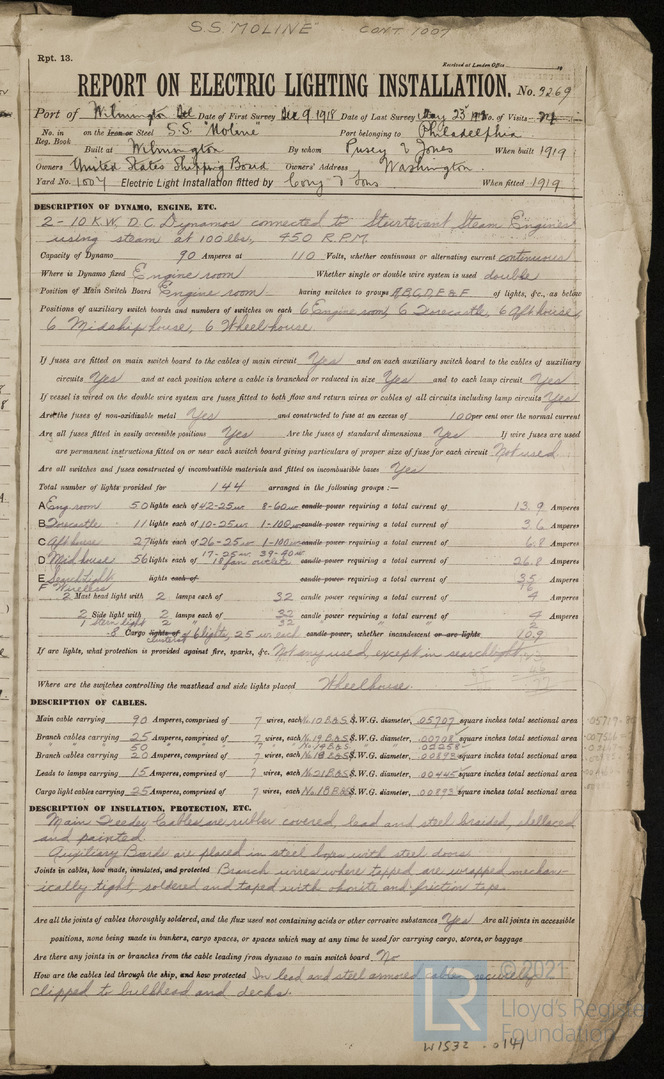 S.S. "MOLINE" CONT. 1007
Rpt. 13.
Received at London Office
REPORT ON ELECTRIC LIGHTING INSTALLATION. No. 9269
Port of Wilmington Del Date of First Survey Dec 9. 1918 Date of Last Survey May 23rd 1919 No. of Visits
No. in Reg. Book on the Iron or Steel S.S. Moline Port belonging to Philadelphia
Built at Wilmington By whom Pusey & Jones When built 1919
Owners United States Shipping Board Owners' Address Washington.
Yard No. 1007 Electric Light Installation fitted by Cory & Sons When fitted 1919
DESCRIPTION OF DYNAMO, ENGINE, ETC.
2-10 K.W. D.C. Dynamos connected to Sturtevant Steam Engines
using steam at 100 lbs, 450 R.P.M.
Capacity of Dynamo 90 Amperes at 110 Volts, whether continuous or alternating current continuous
Where is Dynamo fixed Engine room Whether single or double wire system is used double
Position of Main Switch Board Engine room having switches to groups A,B,C,D,E & F of lights, &c., as below
Positions of auxiliary switch boards and numbers of switches on each 6 Engine room, 6 Forecastle, 6 Aft house,
6 Midship house, 6 Wheelhouse.
If fuses are fitted on main switch board to the cables of main circuit Yes and on each auxiliary switch board to the cables of auxiliary
circuits Yes and at each position where a cable is branched or reduced in size Yes and to each lamp circuit Yes
If vessel is wired on the double wire system are fuses fitted to both flow and return wires or cables of all circuits including lamp circuits Yes
Are the fuses of non-oxidizable metal Yes and constructed to fuse at an excess of 100 per cent over the normal current
Are all fuses fitted in easily accessible positions Yes Are the fuses of standard dimensions Yes If wire fuses are used
are permanent instructions fitted on or near each switch board giving particulars of proper size of fuse for each circuit Not used
Are all switches and fuses constructed of incombustible materials and fitted on incombustible bases Yes
Total number of lights provided for 144 arranged in the following groups :—
A Eng room 50 lights each of 42-25w 8-60w candle power requiring a total current of 13.9 Amperes
B Forecastle 11 lights each of 10-25w 1-100w candle power requiring a total current of 3.6 Amperes
C Aft house 27 lights each of 26-25w 1-100w candle power requiring a total current of 6.8 Amperes
D Mid house 56 lights each of 17-25w. 39-40w 18 fan outlets candle power requiring a total current of 26.8 Amperes
E Searchlight lights each of candle power requiring a total current of 35 Amperes
F Wireless
2 Mast head light with 2 lamps each of 32 candle power requiring a total current of 4 Amperes
2 Side light with 2 lamps each of 32 candle power requiring a total current of 4 Amperes
1 Stern light 2 " 32 " " " " 2
8 Cargo lights of clusters 6 lights, 25 w each candle power, whether incandescent or arc lights 10.9
If arc lights, what protection is provided against fire, sparks, &c. Not any used, except in searchlight.
Where are the switches controlling the masthead and side lights placed Wheelhouse.
DESCRIPTION OF CABLES.
Main cable carrying 90 Amperes, comprised of 7 wires, each No. 10 B&S S.W.G. diameter, .05707 square inches total sectional area
Branch cables carrying 25 Amperes, comprised of 7 wires, each No. 19 B&S S.W.G. diameter, .00708 square inches total sectional area
" " 50 " " " 7 " " No. 14 B&S " " .02258
Branch cables carrying 20 Amperes, comprised of 7 wires, each No. 18 B&S S.W.G. diameter, .00893 square inches total sectional area
Leads to lamps carrying 15 Amperes, comprised of 7 wires, each No. 21 B&S S.W.G. diameter, .00445 square inches total sectional area
Cargo light cables carrying 25 Amperes, comprised of 7 wires, each No. 18 B&S S.W.G. diameter, .00893 square inches total sectional area
DESCRIPTION OF INSULATION, PROTECTION, ETC.
Main Feeder Cables are rubber covered, lead and steel braided, shellaced
and painted.
Auxiliary Boards are placed in steel boxes with steel doors.
Joints in cables, how made, insulated, and protected Branch wires where tapped are wrapped mechan-
ically tight, soldered and taped with okonite and friction tape.
Are all the joints of cables thoroughly soldered, and the flux used not containing acids or other corrosive substances Yes Are all joints in accessible
positions, none being made in bunkers, cargo spaces, or spaces which may at any time be used for carrying cargo, stores, or baggage
Are there any joints in or branches from the cable leading from dynamo to main switch board No
How are the cables led through the ship, and how protected In lead and steel armored cables securely
clipped to bulkhead and decks.
© 2021
LR Lloyd's Register
Foundation
W1532-0141